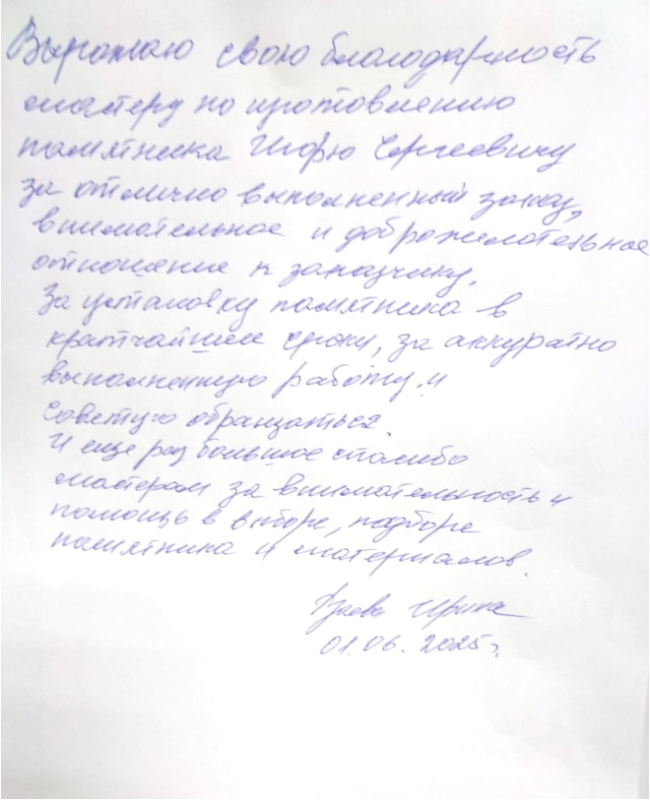 Выражаю свою благодарность
мастеру по изготовлению
памятника Игорю Сергеевичу
за отлично выполненный заказ,
внимательное и доброжелательное
отношение к заказчику.
За установку памятника в
кратчайшие сроки, за аккуратно
выполненную работу. и
Советую обращаться.
И еще раз большое спасибо
мастерам за внимательность и
помощь в выборе, подборе
памятника и материалов.
Ирина
01.06.2025г.